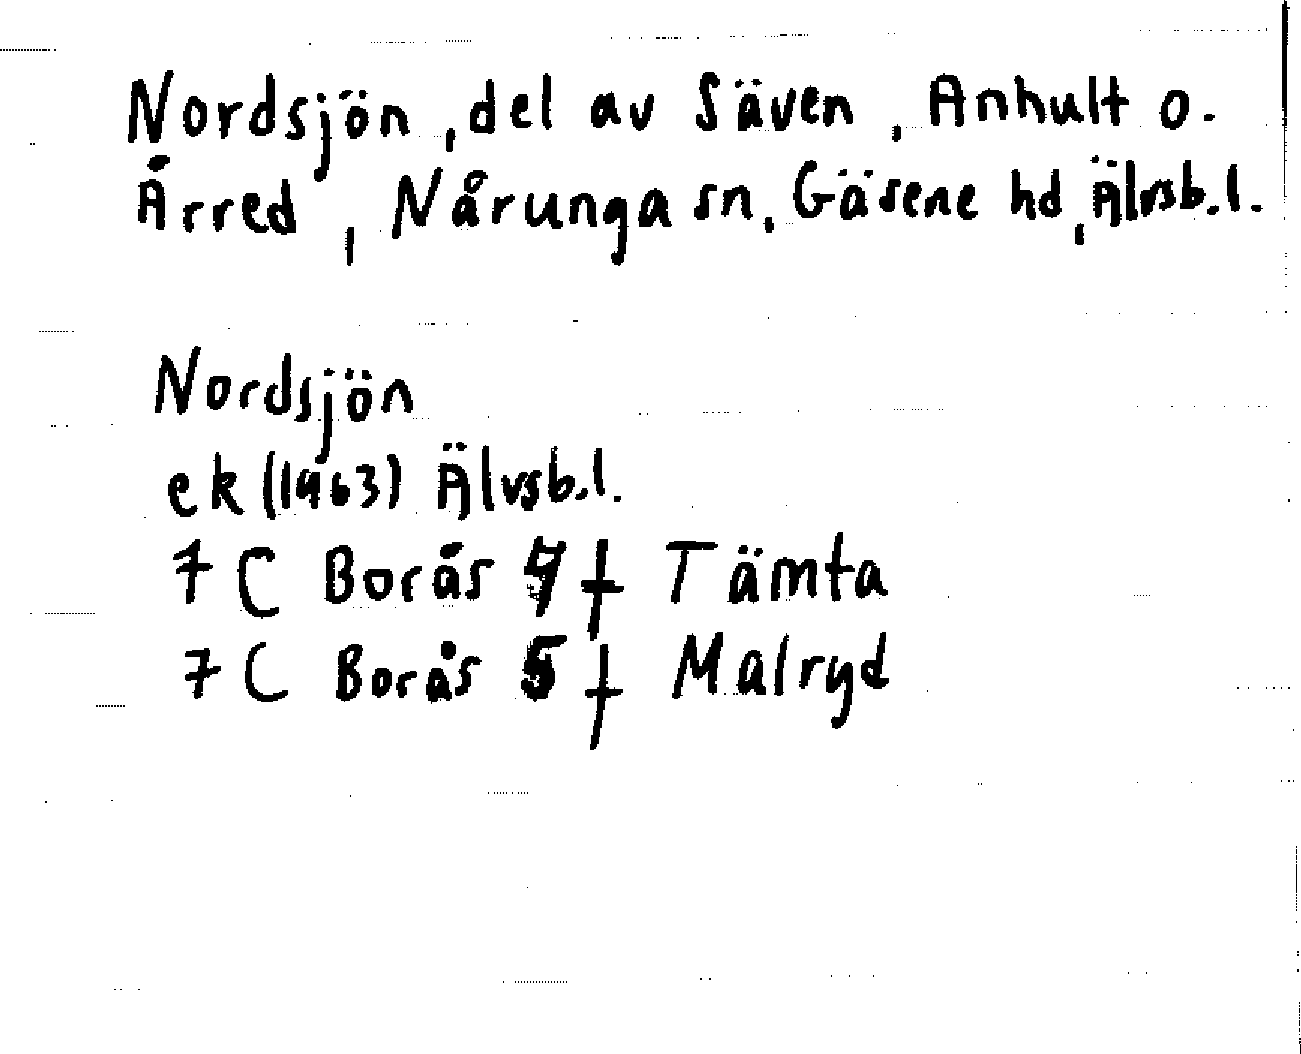 Nordsjön, del av Säven, Anhult o.
Årred, Nårunga sn, Gäsene hd, Älvsb.l.
Nordsjön
ek (1963) Älvsb.l.
7 C Borås 4 f Tämta
7 C Borås 5 f Malryd